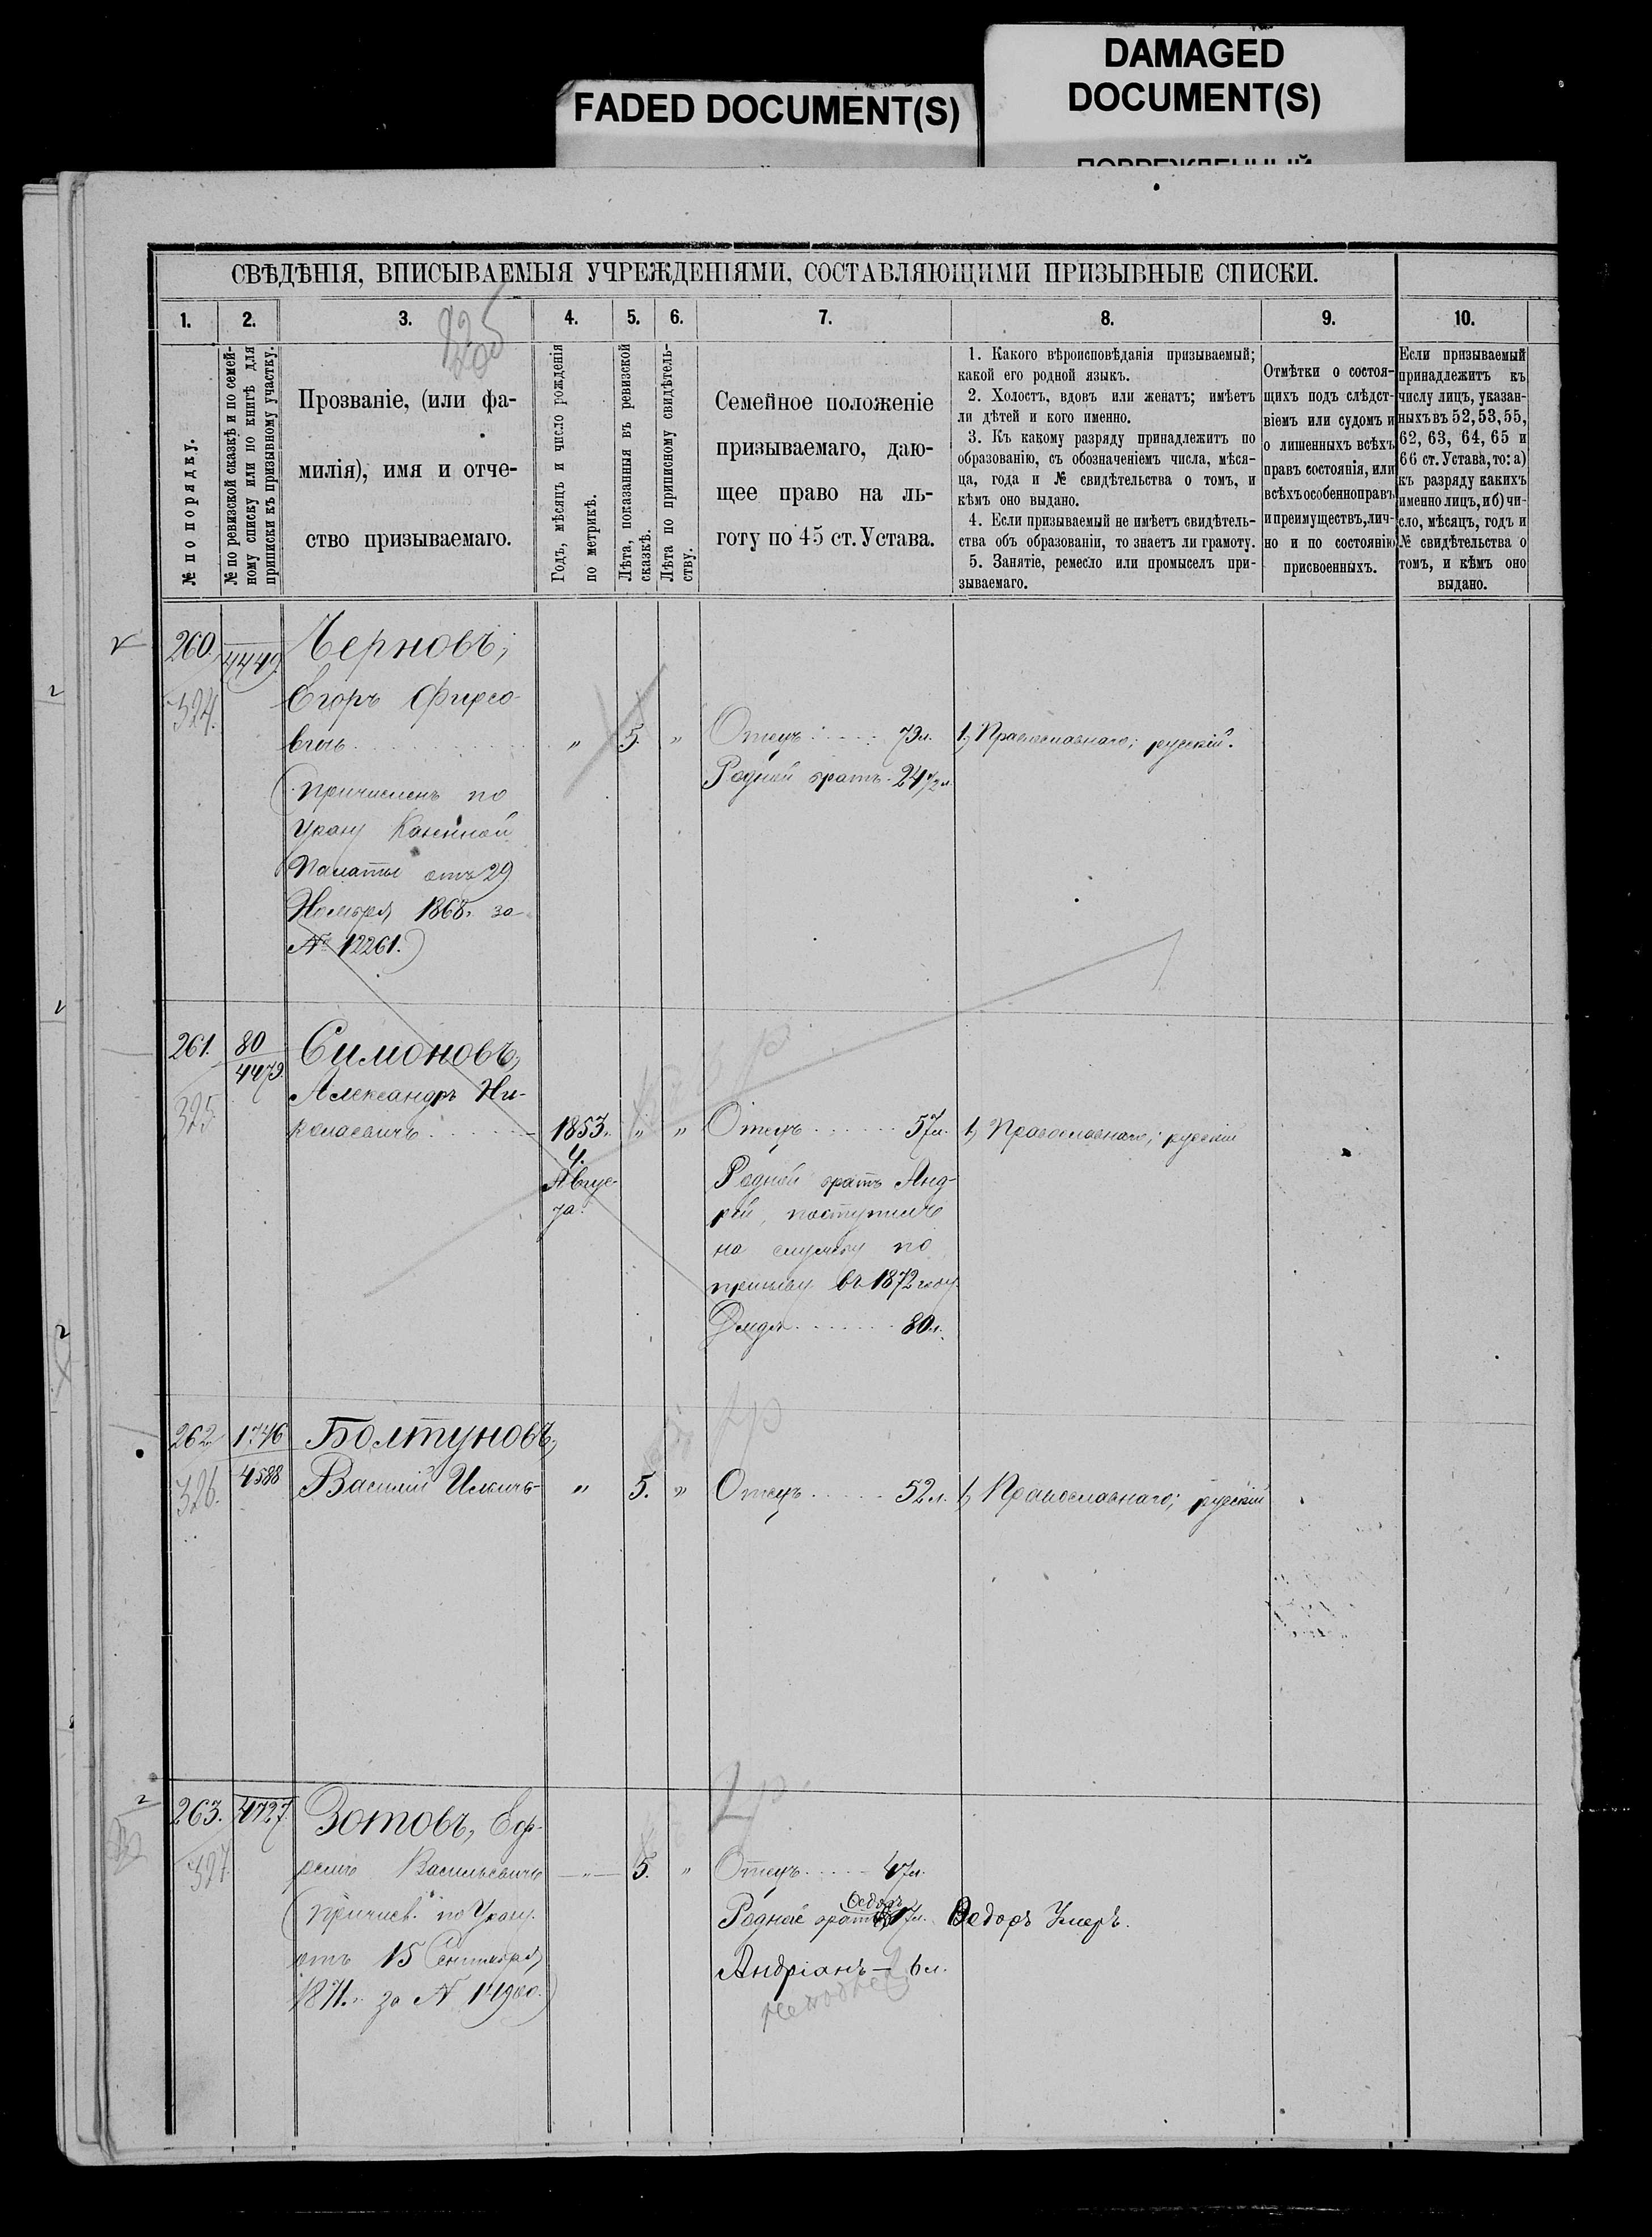 FADED DOCUMENT(S)
DAMAGED
DOCUMENT(S)
СВѢДѢНІЯ, ВПИСЫВАЕМЫЯ УЧРЕЖДЕНІЯМИ, СОСТАВЛЯЮЩИМИ ПРИЗЫВНЫЕ СПИСКИ.
1.
2.
3.
4.
5.
6.
7.
8.
9.
10.
225
№ по порядку.
№ по ревизской сказкѣ и по семей-
ному списку или по книгѣ для
приписки къ призывному участку.
Прозваніе, (или фа-
милія), имя и отче-
ство призываемаго.
Годъ, мѣсяцъ и число рожденія
по метрикѣ.
Лѣта, показанныя въ ревизской
сказкѣ.
Лѣта по приписному свидѣтель-
ству.
Семейное положеніе
призываемаго, даю-
щее право на ль-
готу по 45 ст. Устава.
1. Какого вѣроисповѣданія призываемый;
какой его родной языкъ.
2. Холостъ, вдовъ или женатъ; имѣетъ
ли дѣтей и кого именно.
3. Къ какому разряду принадлежитъ по
образованію, съ обозначеніемъ числа, мѣся-
ца, года и № свидѣтельства о томъ, и
кѣмъ оно выдано.
4. Если призываемый не имѣетъ свидѣтель-
ства объ образованіи, то знаетъ ли грамоту.
5. Занятіе, ремесло или промыселъ при-
зываемаго.
Отмѣтки о состоя-
щихъ подъ слѣдст-
віемъ или судомъ и
о лишенныхъ всѣхъ
правъ состоянія, или
всѣхъ особенно правъ
и преимуществъ, лич-
но и по состоянію
присвоенныхъ.
Если призываемый
принадлежитъ къ
числу лицъ, указан-
ныхъ въ 52, 53, 55,
62, 63, 64, 65 и
66 ст. Устава, то: а)
къ разряду какихъ
именно лицъ, и б) чи-
сло, мѣсяцъ, годъ и
№ свидѣтельства о
томъ, и кѣмъ оно
выдано.
260. 4449. Черновъ,
324. Егоръ Фирсо-
вичъ " 5. " Отецъ 79 л. 1, Православнаго; русскій.
Родной братъ 24 1/2 л.
(Причисленъ по
Указу Казенной
Палаты отъ 29
Ноября 1868 г. за
№ 12261.)
261. 80 Симоновъ,
4479. Александръ Ни-
325 колаевичъ 1853 г. " " Отецъ 57 л. 1, Православнаго; русскій
4.
Авгус-
та.
Родной братъ Анд-
рей, поступилъ
на службу по
призыву въ 1872 году
Дядя 80 л.
262. 1746 Болтуновъ,
326. 4588 Василій Ильичъ " 5. " Отецъ 52 л. 1, Православнаго; русскій
263. 4727 Зотовъ, Еф-
327. ремъ Васильевичъ " 5. " Отецъ 47 л.
(Причисл. по Указу
Федоръ
Родные братья 17 л. Федоръ Умеръ.
отъ 15 Сентября
Андріанъ — 6 л.
1871 г. за № 14900.)